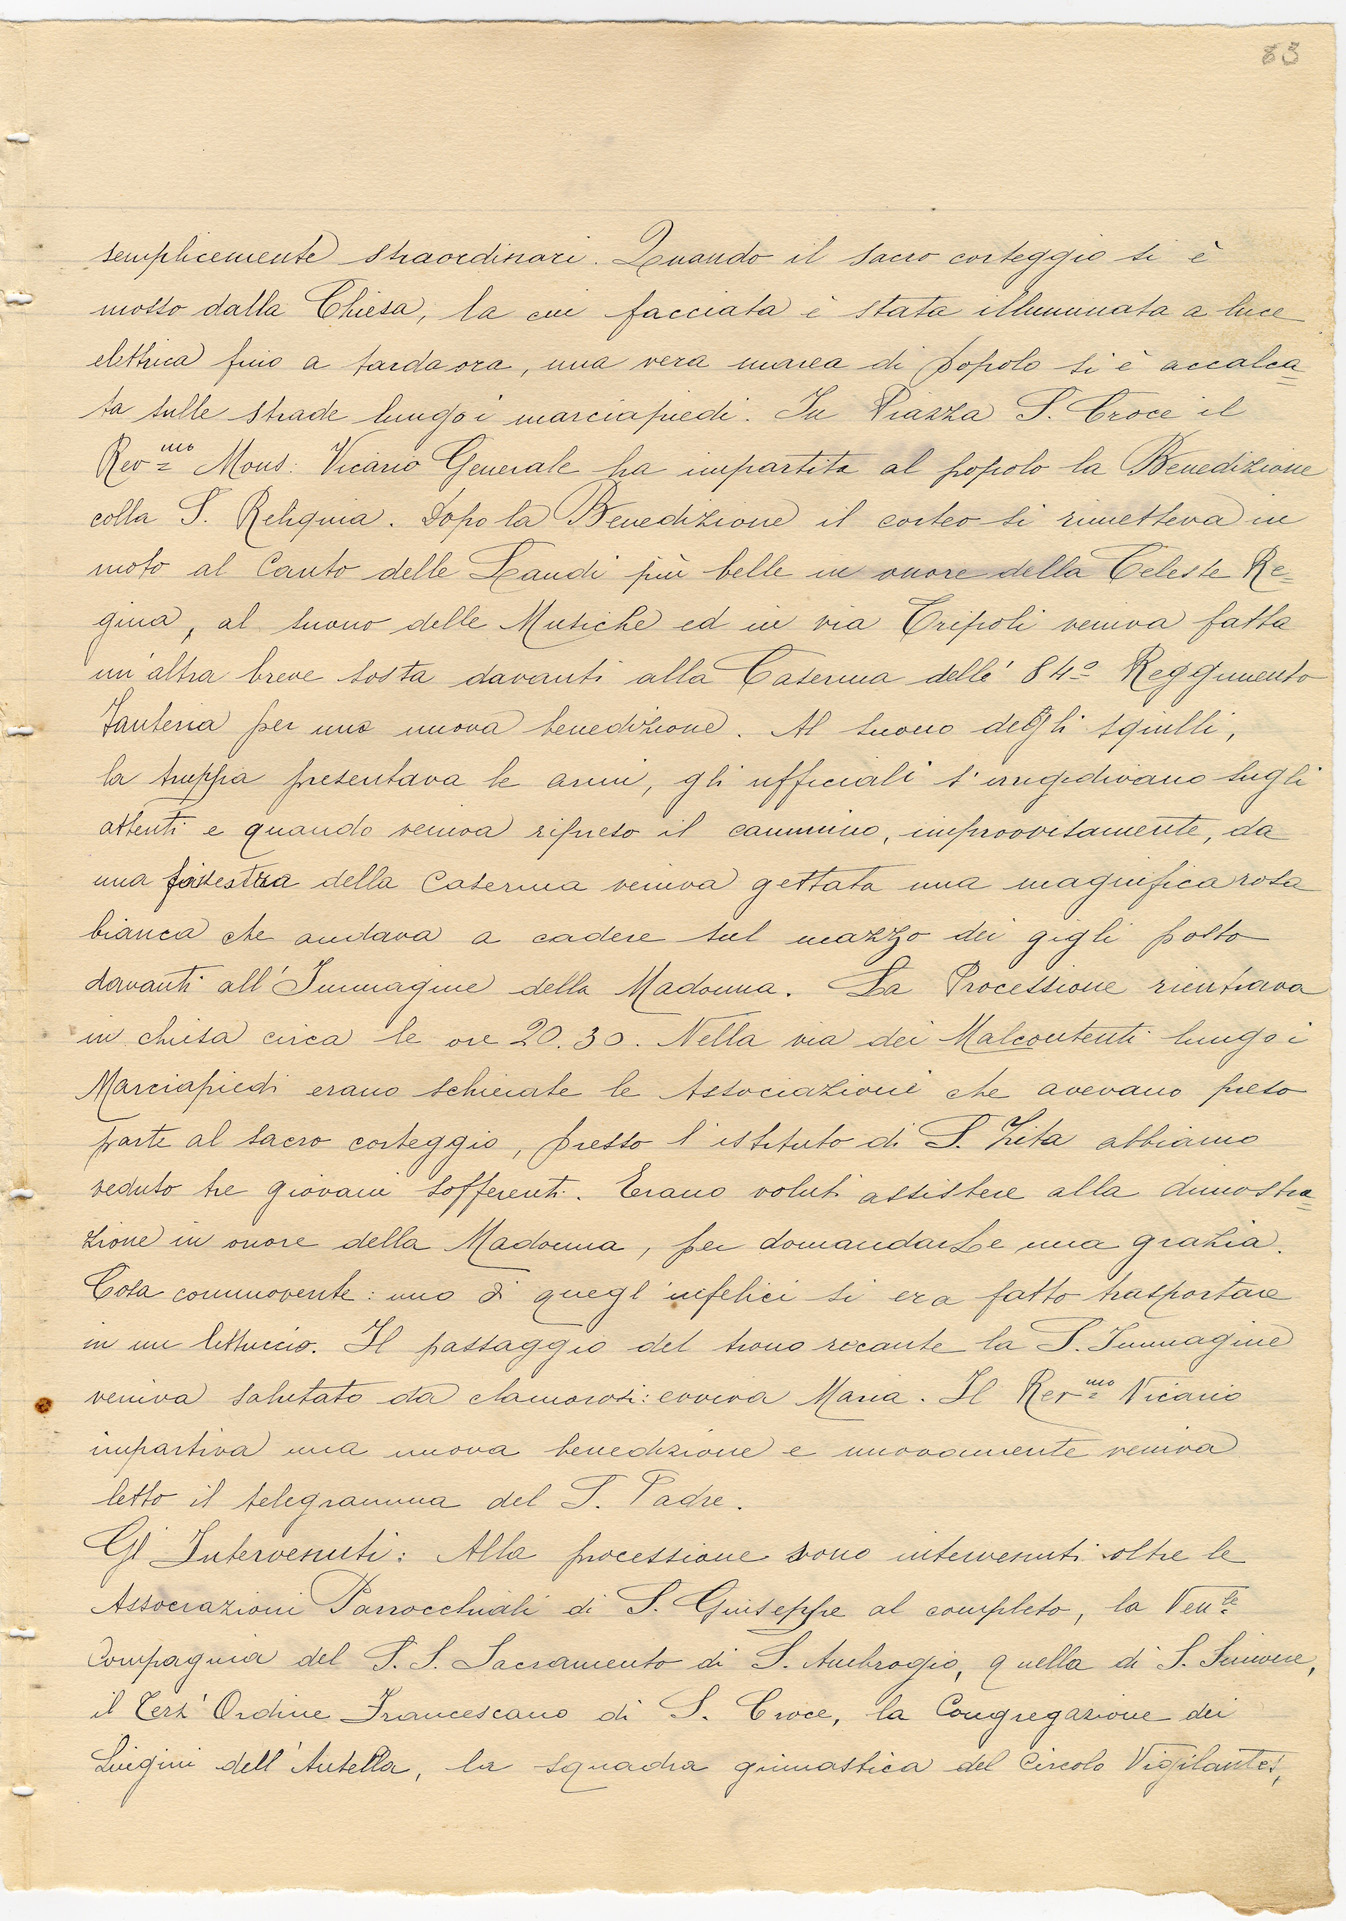 83
semplicemente straordinari. Quando il sacro corteggio si è
mosso dalla Chiesa, la cui facciata è stata illuminata a luce
elettrica fino a tarda ora, una vera marea di popolo si è accalca=
ta sulle strade lungo i marciapiedi. In Piazza S. Croce il
Rev=mo Mons: Vicario Generale ha impartita al popolo la Benedizione
colla S. Reliquia. Dopo la Benedizione il corteo si rimetteva in
moto al Canto delle Laudi più belle in onore della Celeste Re=
gina, al suono delle Musiche ed in via Tripoli veniva fatta
un'altra breve sosta davanti alla Caserma delle' 84º Reggimento
Fanteria per una nuova benedizione. Al suono degli squilli,
la truppa presentava le armi, gli ufficiali s'irrigidivano sugli
attenti e quando veniva ripreso il cammino, improvvisamente, da
una finestra della Caserma veniva gettata una magnifica rosa
bianca che andava a cadere sul mazzo dei gigli posto
davanti all'Immagine della Madonna. La Processione rientrava
in chiesa circa le ore 20.30. Nella via dei Malcontenti lungo i
Marciapiedi erano schierate le Associazioni che avevano preso
parte al sacro corteggio, presso l'istituto di S. Zita abbiamo
veduto tre giovani sofferenti. Erano voluti assistere alla dimostra=
zione in onore della Madonna, per domandarLe una grazia.
Cosa commovente: uno di quegl'infelici si era fatto trasportare
in un lettuccio. Il passaggio del trono recante la S. Immagine
veniva salutato da clamorosi: evviva Maria. Il Rev=mo Vicario
impartiva una nuova benedizione e nuovamente veniva
letto il telegramma del S. Padre.
Gl'Intervenuti: Alla processione sono intervenuti oltre le
Associazioni Parrocchiali di S. Giuseppe al completo, la Ven=le
Compagnia del S. S. Sacramento di S. Ambrogio, quella di S. Simone,
il Terz'Ordine Francescano di S. Croce, la Congregazione dei
Luigini dell'Antella, la squadra ginnastica del Circolo Vigilantes,